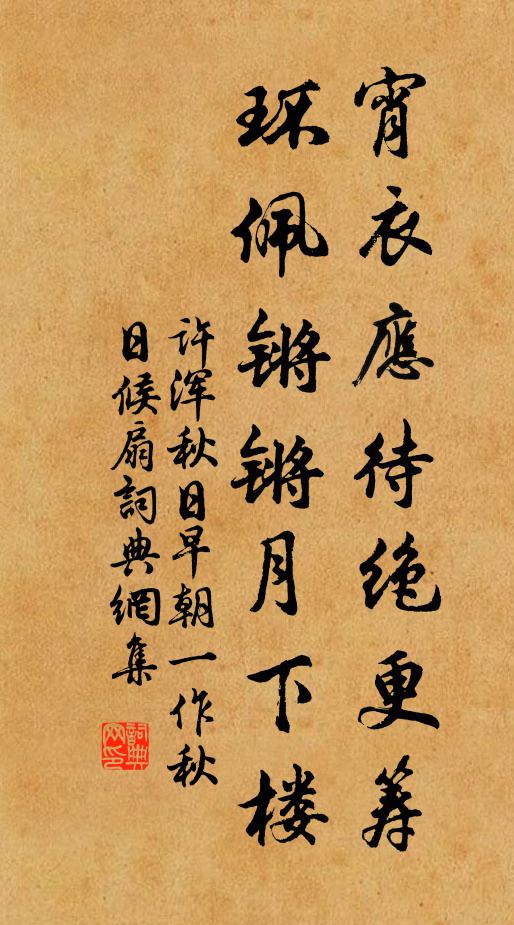 宵衣應待绝更筹
环佩锵锵月下楼
许浑秋日早朝一作秋
日候扇詞典網集
詞典网印